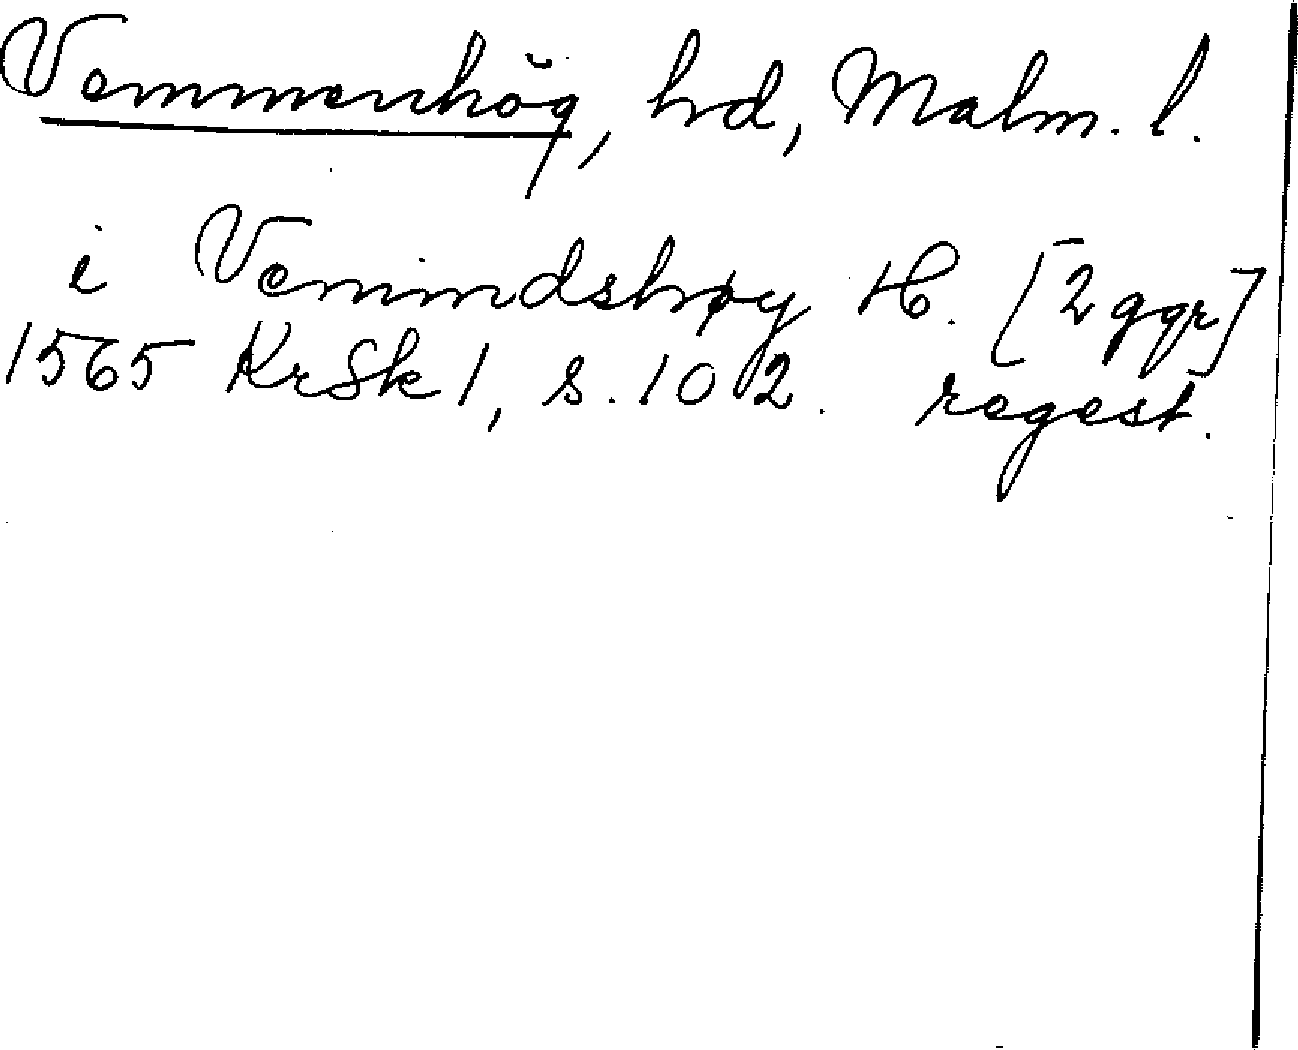 Vemmenhög, hd, Malm. l.
i Vemindshøy H. [2 ggr]
1565 KrSk 1, s. 102. regest.